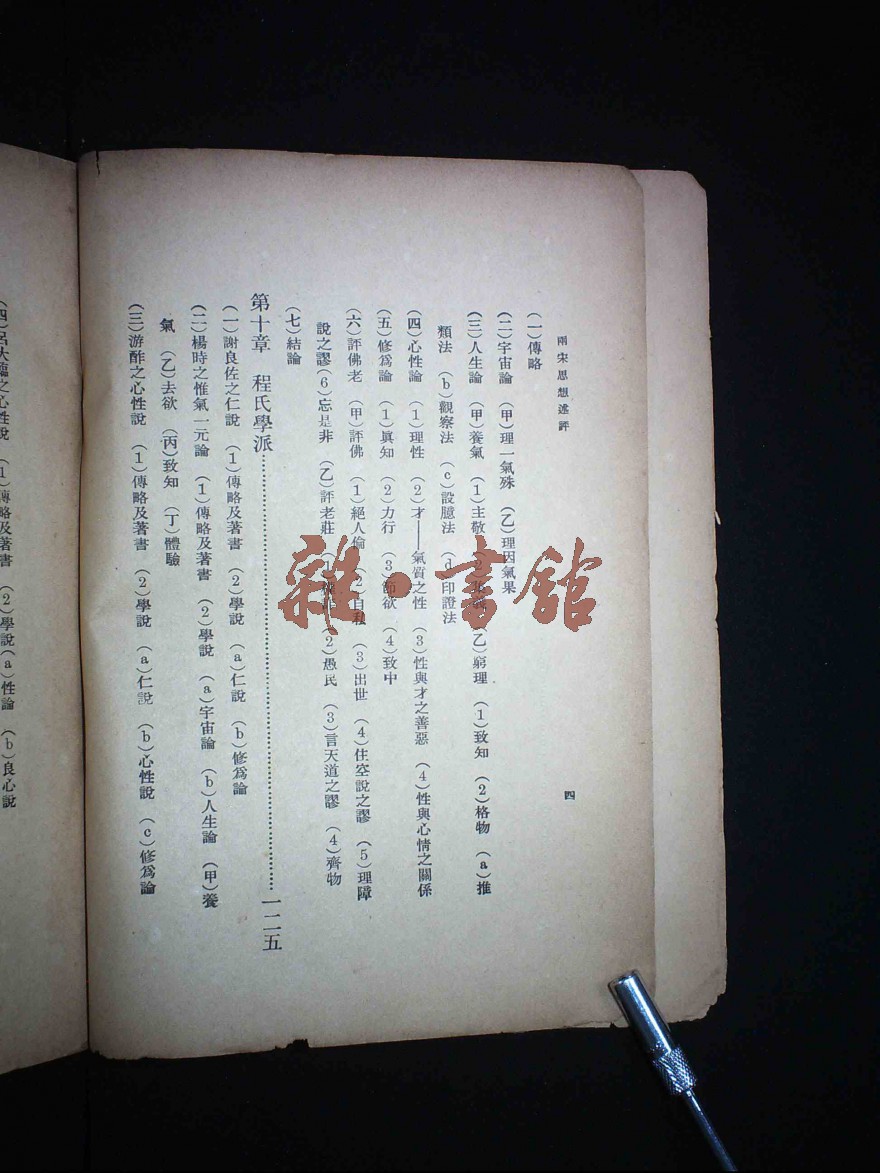 兩宋思想述評
四
（一）傳略
（二）宇宙論　（甲）理一氣殊　（乙）理因氣果
（三）人生論　（甲）養氣　（1）主敬（2）　（乙）窮理　（1）致知　（2）格物　（a）推
類法　（b）觀察法　（c）設臆法　（d）印證法
（四）心性論　（1）理性　（2）才——氣質之性　（3）性與才之善惡　（4）性與心情之關係
（五）修爲論　（1）眞知　（2）力行　（3）節欲　（4）致中
（六）評佛老　（甲）評佛　（1）絕人倫　（2）自私　（3）出世　（4）住空說之謬　（5）理障
說之謬（6）忘是非　（乙）評老莊　（1）　（2）愚民　（3）言天道之謬　（4）齊物
（七）結論
第十章　程氏學派……………………一二五
（一）謝良佐之仁說　（1）傳略及著書　（2）學說　（a）仁說　（b）修爲論
（二）楊時之惟氣一元論　（1）傳略及著書　（2）學說　（a）宇宙論　（b）人生論　（甲）養
氣　（乙）去欲　（丙）致知　（丁）體驗
（三）游酢之心性說　（1）傳略及著書　（2）學說　（a）仁說　（b）心性說　（c）修爲論
（四）呂大臨之心性說　（1）傳略及著書　（2）學說（a）性論　（b）良心說
雜·書館